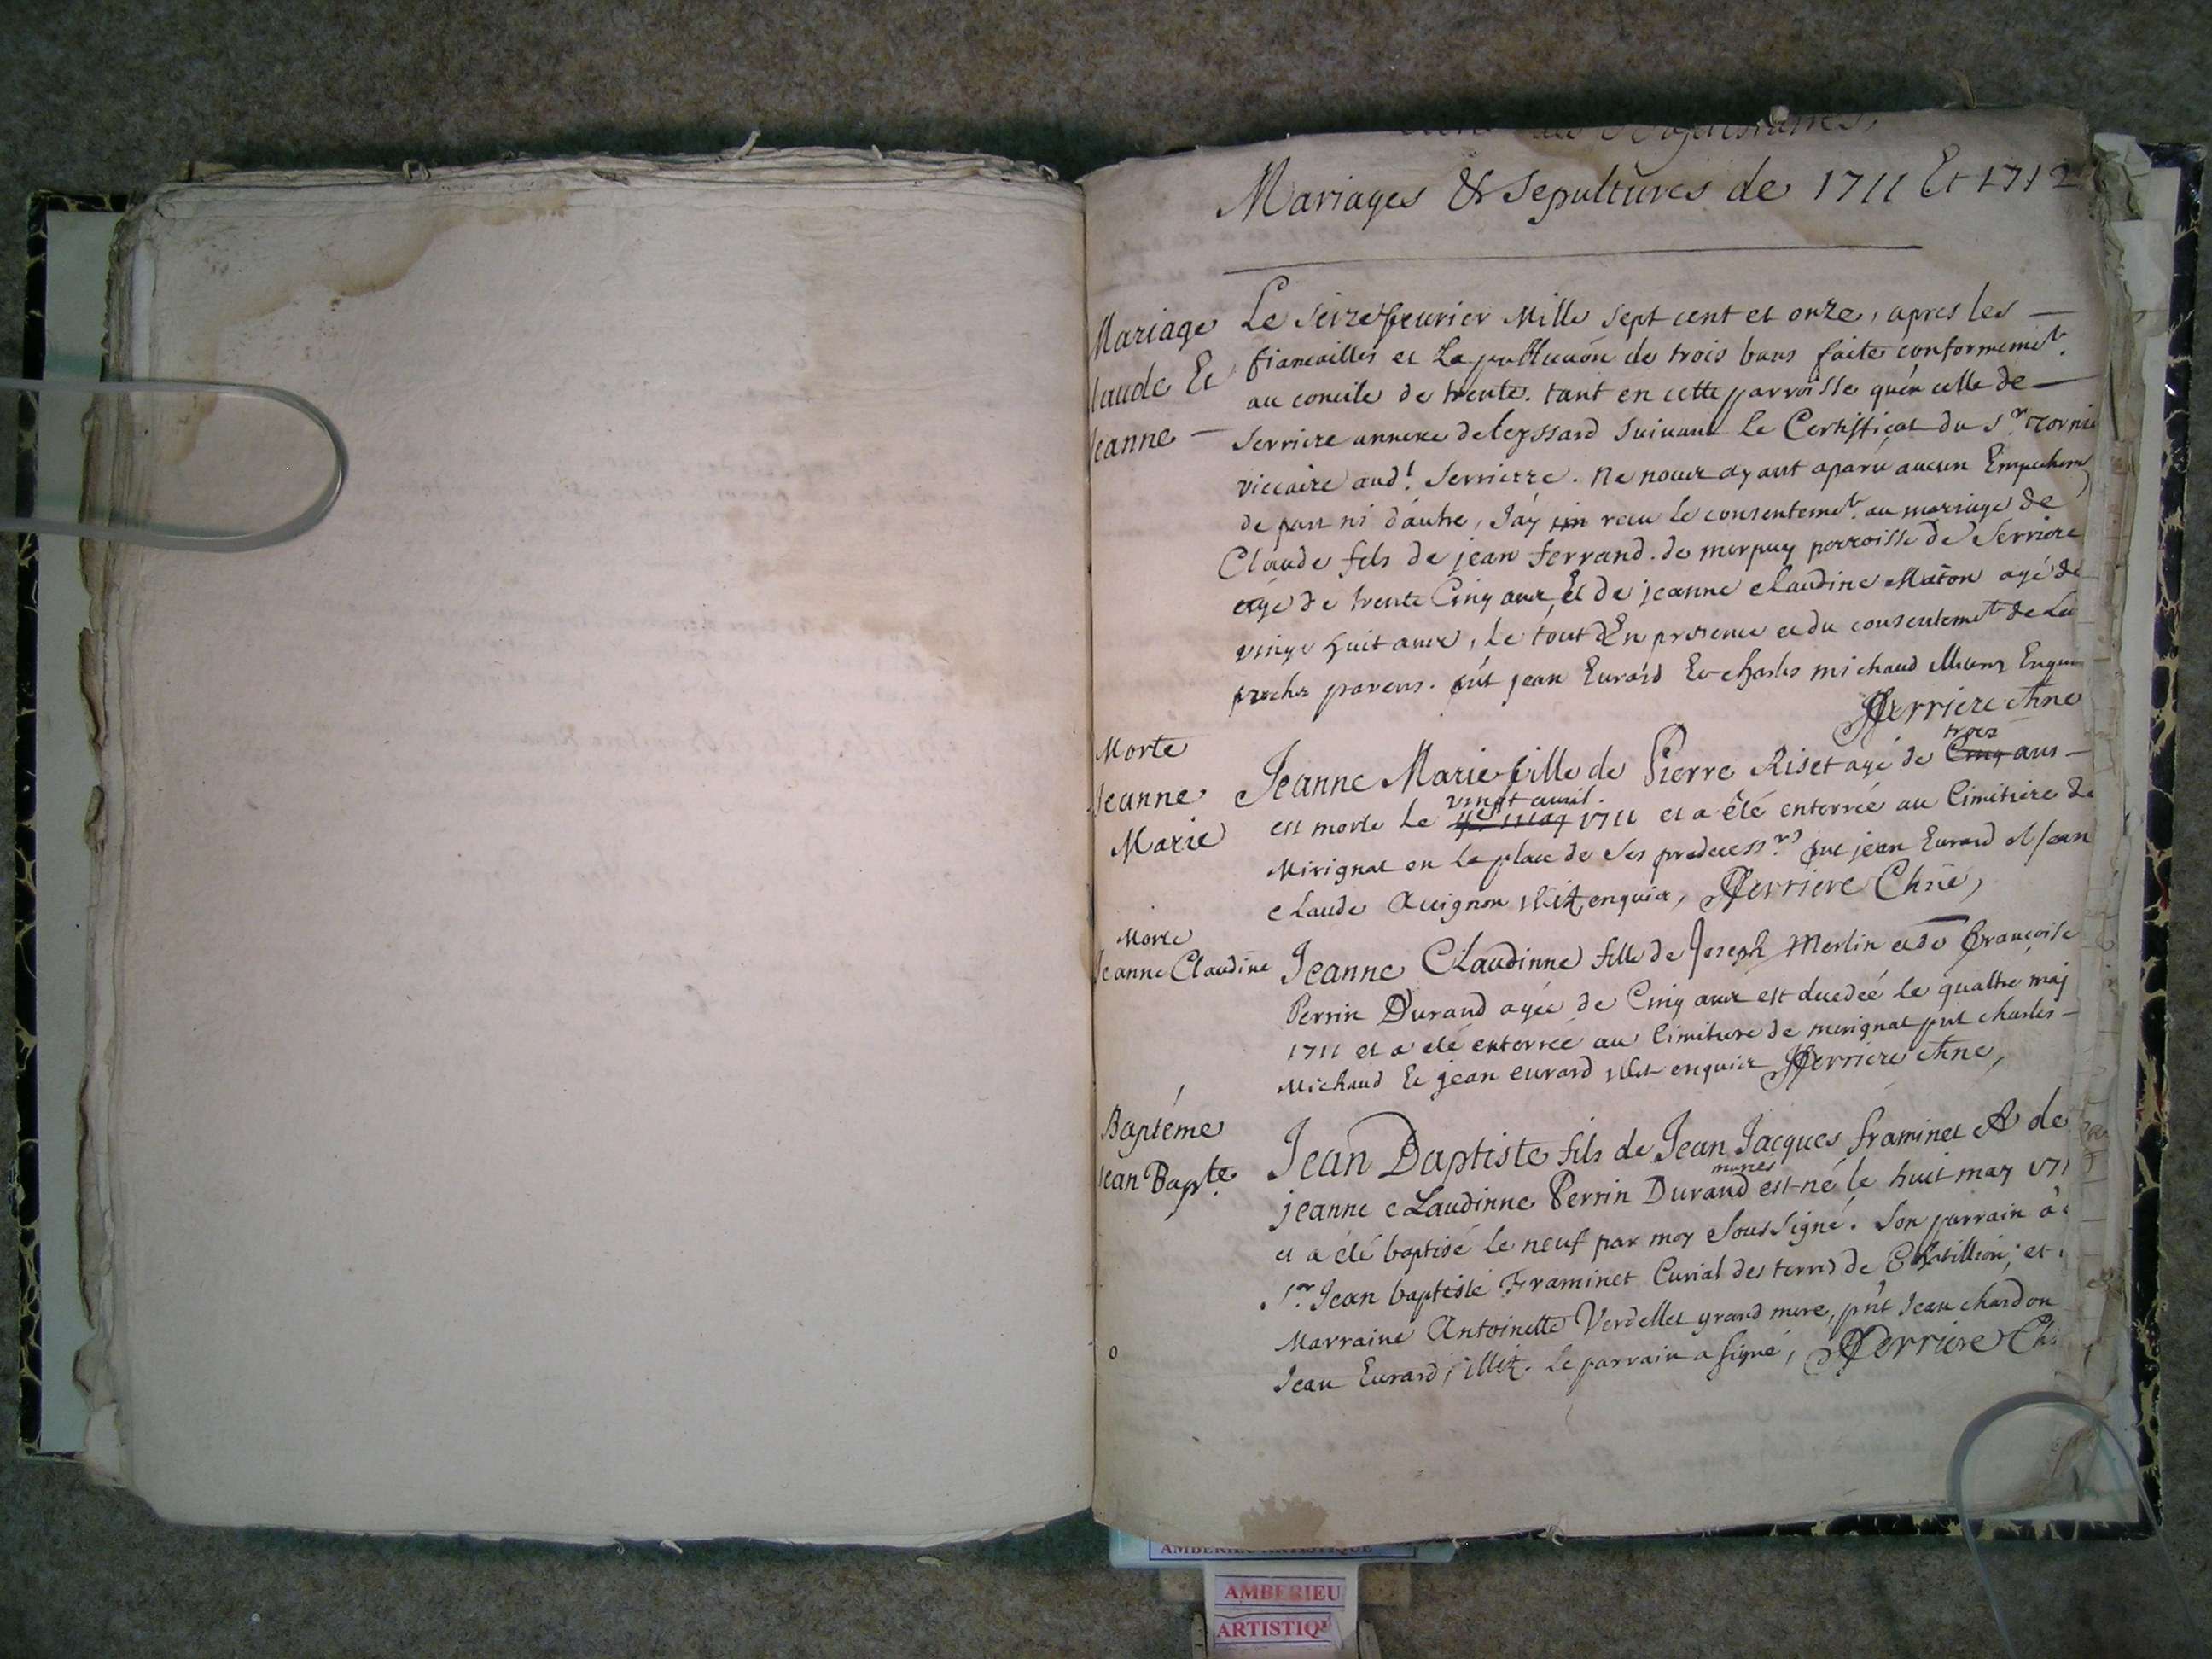 Mariages & Sepultures de 1711 Et 1712
Mariage
laude Et
Jeanne —
Le Seize feurier Mille Sept cent et onze, apres les —
fiancailles et La publicaon de trois bans faite conformemet.
au concile de trente. tant en cette parroisse quen celle de —
Serriere annexe de leyssard Suiuant Le Certificat du Sr.
viccaire audt. Serrierre. Ne nous ayant aparu aucun Empechem
de part ni d'autre, J'ay receu le consentemet. au mariage de
Claude fils de jean ferrand. de morpuy parroisse de Serriere
agé de trente Cinq ans, Et de jeanne claudine Maton agé de
vingt huit ans, le tout En presence et du consentemet de Leu
proches parens. pnt jean Eurard Et charles michaud Enqui
Ferriere Chne
Morte
Jeanne
Marie
Jeanne Marie fille de Pierre Riset agé de Cinq trois ans —
est morte Le vingt auril. 1711 et a été enterrée au Cimitiere de
Mirignat en la place de ses predecessrs pnt jean Eurard et Jean
claude Auignon illit, enquis, Ferriere Chne,
Morte
Jeanne Claudine
Jeanne Claudinne fille de Joseph Merlin et de françoise
Perrin Durand agée de Cinq ans est decedeé le quattre maj
1711 et a eté enterrée au Cimitiere de merignat pnt charles —
Michaud Et jean eurard illet enquis Ferriere Chne,
Baptéme
Jean Bapte.
Jean Baptiste fils de Jean Jacques framinet & de
jeanne cLaudinne Perrin Durand mariés est né le huit may 171
et a été baptisé le neuf par moy Soussigné. Son parrain a é
Sr. Jean baptiste Framinet Curial des terres de Chatillion, et
Marraine Antoinette Verdellet grand mere, pnt Jean chardon
Jean Eurard, illit. Le parrain a signé, Ferriere Ch
AMBERIEU ARTISTIQUE
AMBERIEU
ARTISTIQU